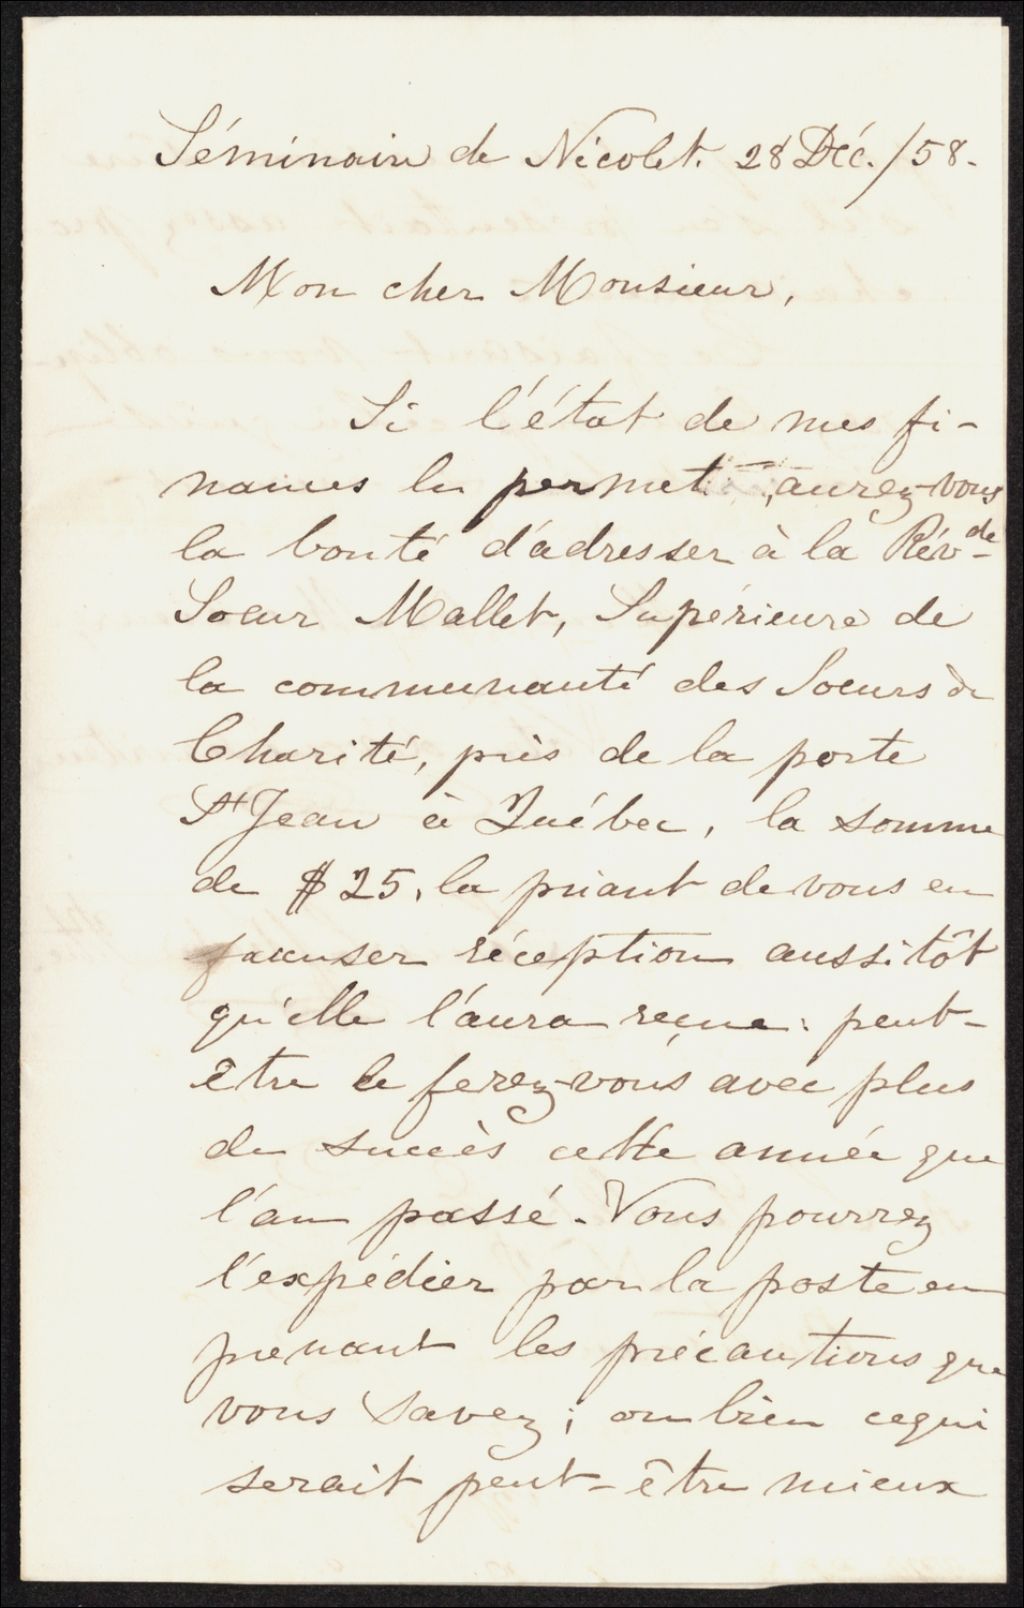 Séminaire de Nicolet. 28 Déc./58.
Mon cher Monsieur,
Si l'état de mes fi-
nances le permet, aurez-vous
la bonté d'adresser à la Rév^de
Soeur Mallet, Supérieure de
la communauté des Soeurs de
Charité, près de la porte
St Jean à Québec, la somme
de $25, la priant de vous en
accuser réception aussitôt
qu'elle l'aura reçue: peut-
être le ferez-vous avec plus
de succès cette année que
l'an passé. Vous pourrez
l'expédier par la poste en
prenant les précautions que
vous savez; ou bien ce qui
serait peut-être mieux